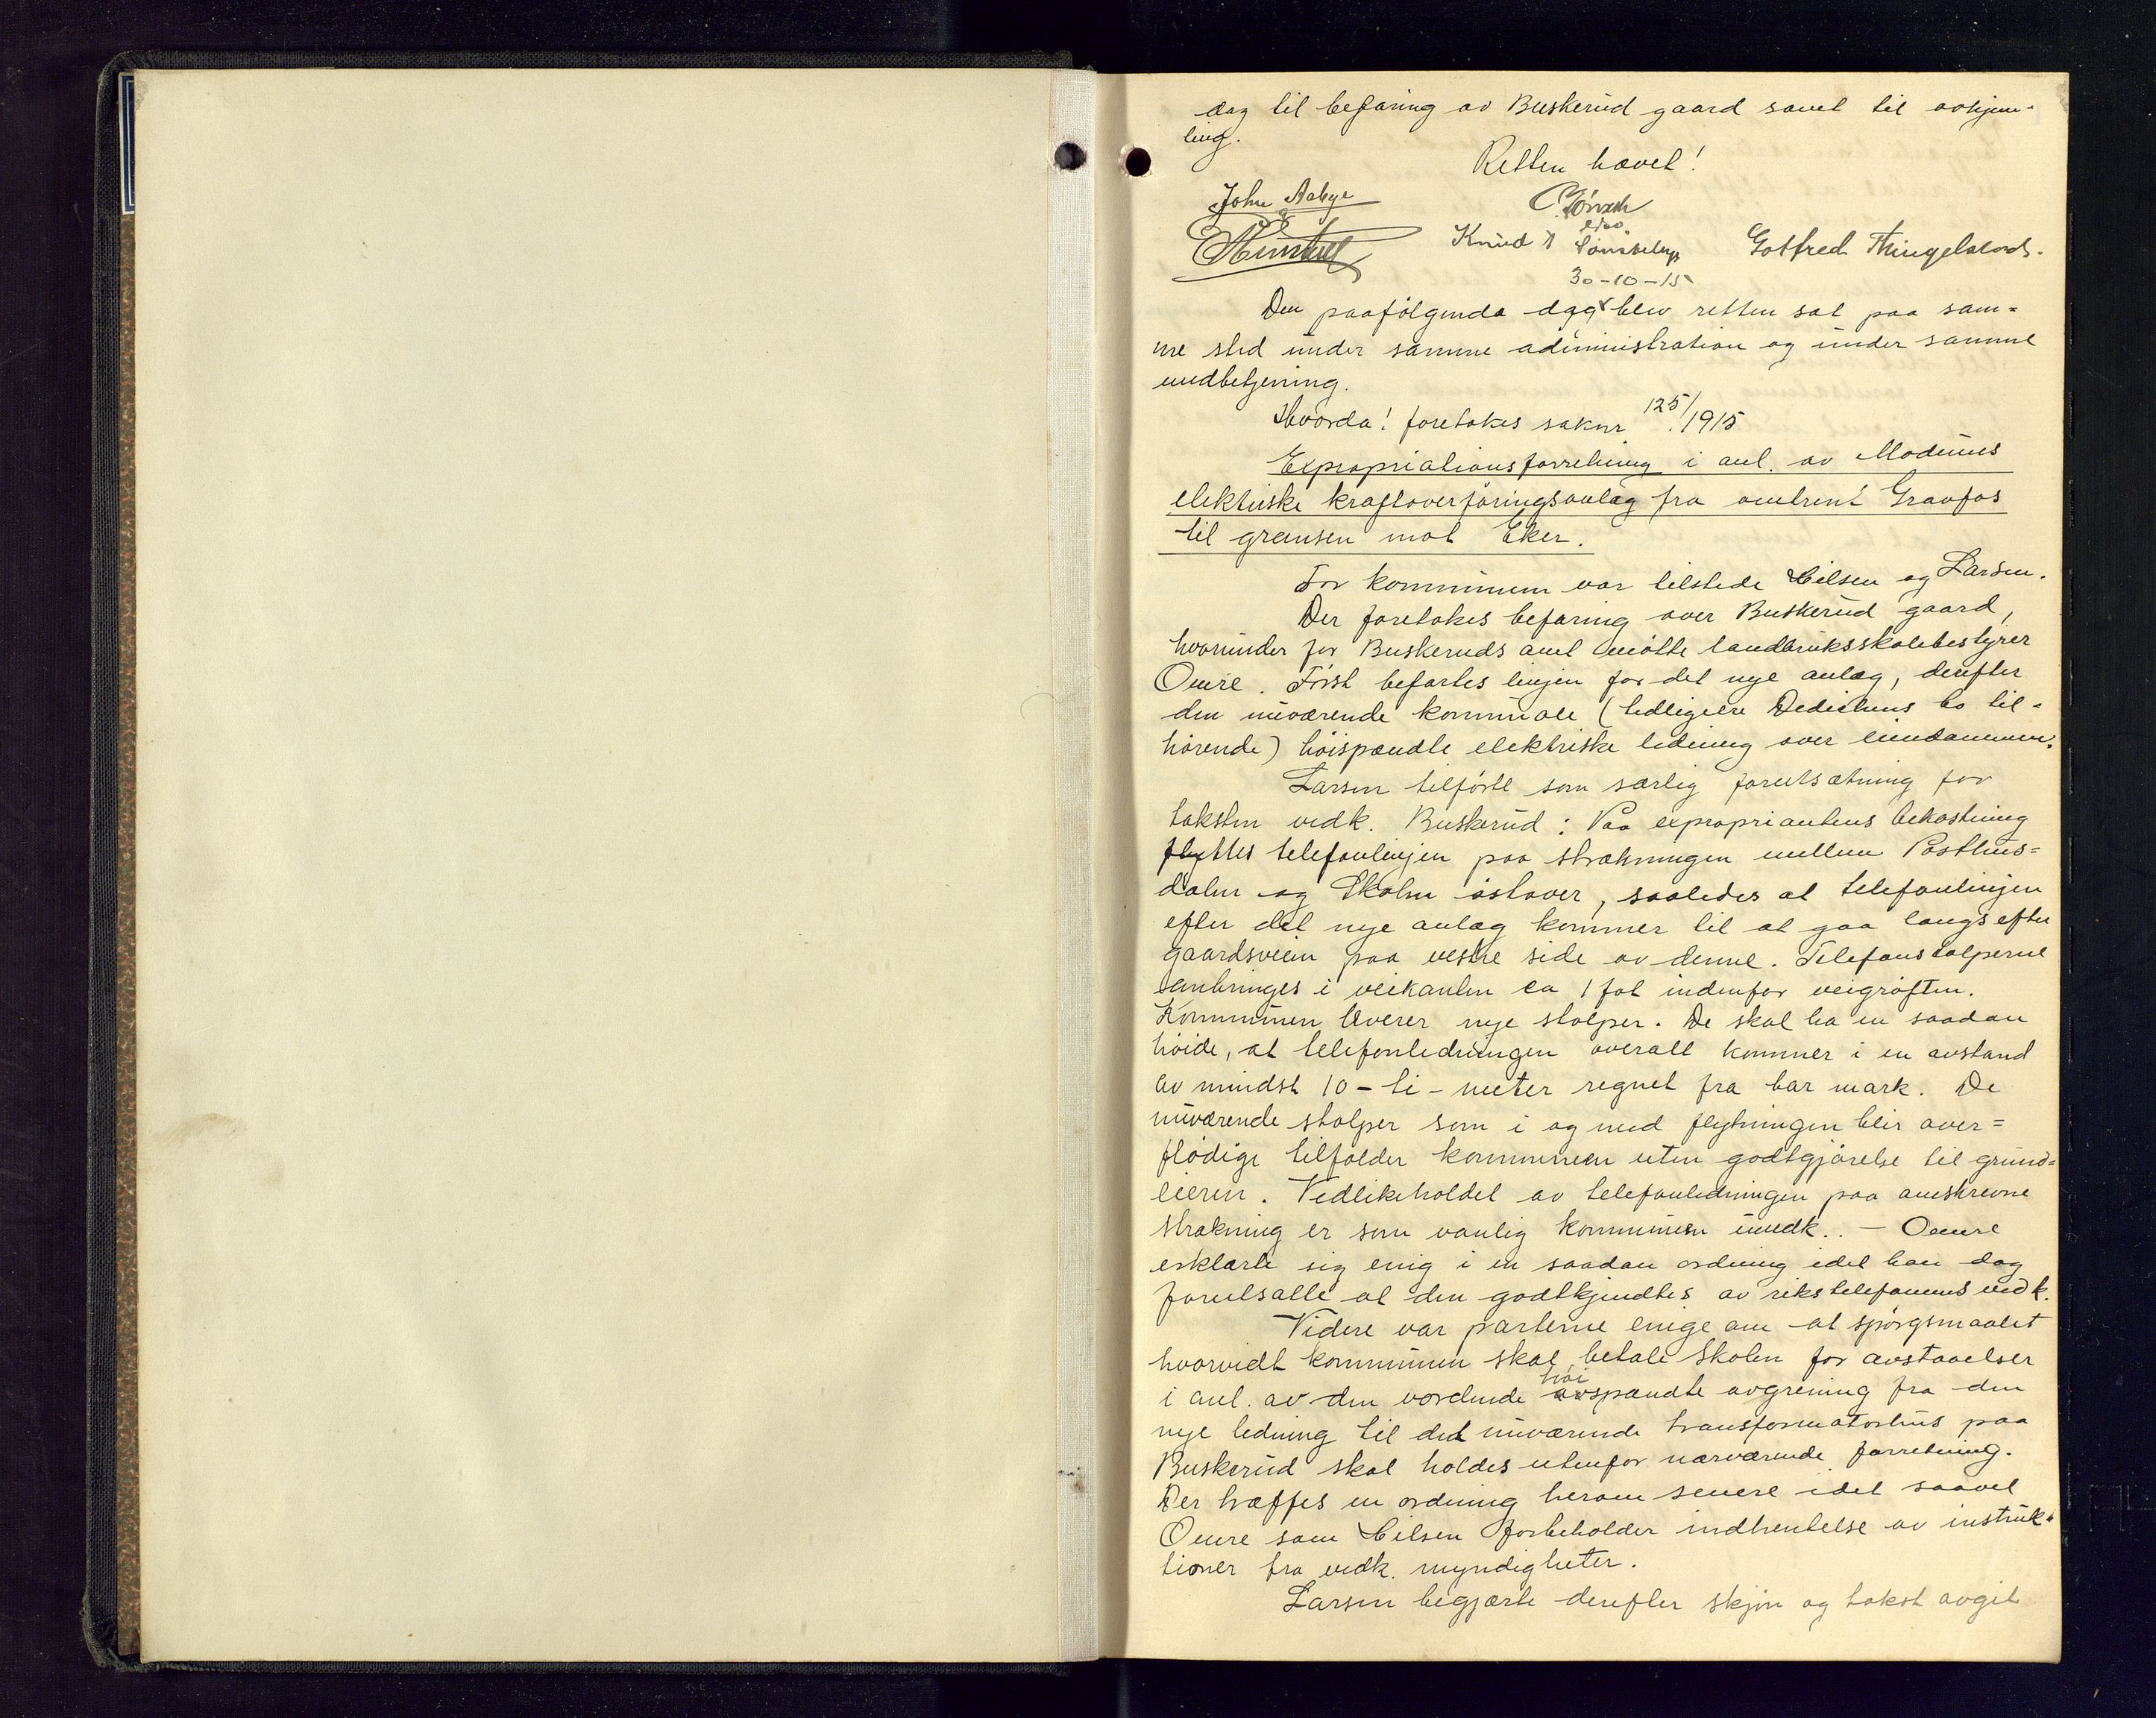 dag til befaring av Buskerud gaard samt til avhjem-
ling.
Retten hævet!
John Aabye
Knud Gotfred Thingelstad.
30-10-15
Den paafølgende dag x blev retten sat paa sam=
me sted under samme administration og under samme
medbetjening.
Hvorda! foretokes saknr. 125/1915
Expropriationsforretning i anl. av Modums
elektriske kraftoverføringsanlæg fra omtrent Gravfos
til grænsen mot Eker.
For kommunen var tilstede Nilsen og Larsen.
Der foretokes befaring over Buskerud gaard,
hvorunder for Buskeruds amt møtte landbruksskolebestyrer
Omre. Først befartes linjen for det nye anlæg, derefter
den nuværende kommunale (tidligere Dedichens bo til-
hørende) høispændte elektriske ledning over eiendommen.
Larsen tilførte som særlig forutsætning for
taksten vedk. Buskerud: Paa expropriantens bekostning
flyttes telefonlinjen paa strækningen mellem Posthus=
dalen og Skolen østover, saaledes at telefonlinjen
efter det nye anlæg kommer til at gaa langs efter
gaardsveien paa vestre side av denne. Telefonstolperne
anbringes i veikanten ca 1 fot indenfor veigrøften.
Kommunen leverer nye stolper. De skal ha en saadan
høide, at telefonledningen overalt kommer i en avstand
av mindst 10 - ti - meter regnet fra bar mark. De
nuværende stolper som i og med flytningen blir over=
flødige tilfalder kommunen uten godtgjørelse til grund=
eieren. Vedlikeholdet av telefonledningen paa omskrevne
strækning er som vanlig kommunen uvedk.. - Omre
erklærte sig enig i en saadan ordning idet han dog
forutsatte at den godtkjendtes av rikstelefonens vedk.
Videre var parterne enige om at spørgsmaalet
hvorvidt kommunen skal betale Skolen for avstaaelser
i anl. av den vordende høispændte avgrening fra den
nye ledning til det nuværende transformatorhus paa
Buskerud skal holdes utenfor nærværende forretning.
Der træffes en ordning herom senere idet saavel
Omre som Nilsen forbeholder indhentelse av instruk-
tioner fra vedk. myndigheter.
Larsen begjærte derefter skjøn og takst avgit